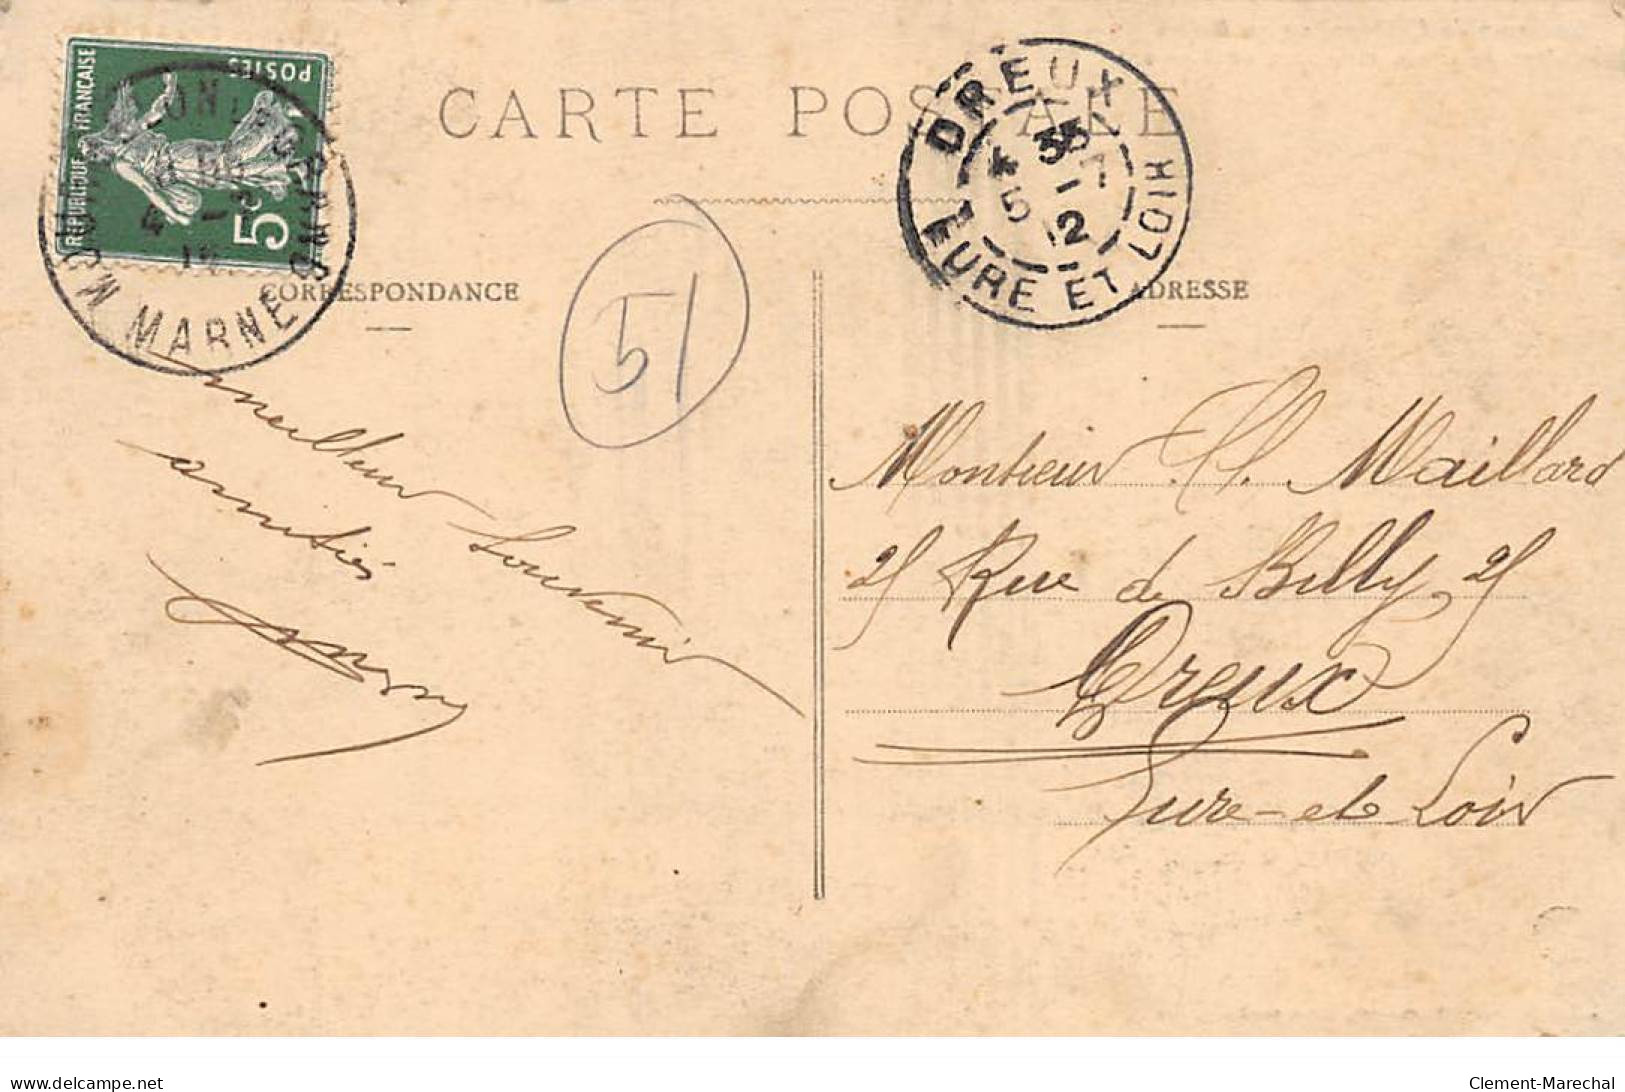 CARTE POSTALE
REPUBLIQUE FRANÇAISE
POSTES
5c
MARNE
DREUX
4 35
5 - 7
12
EURE ET LOIR
CORRESPONDANCE
ADRESSE
51
meilleur souvenir
amitiés
Monsieur Maillard
25 Rue de Billy 25
Dreux
Eure-et-Loir
delcampe.net
Clement-Marechal